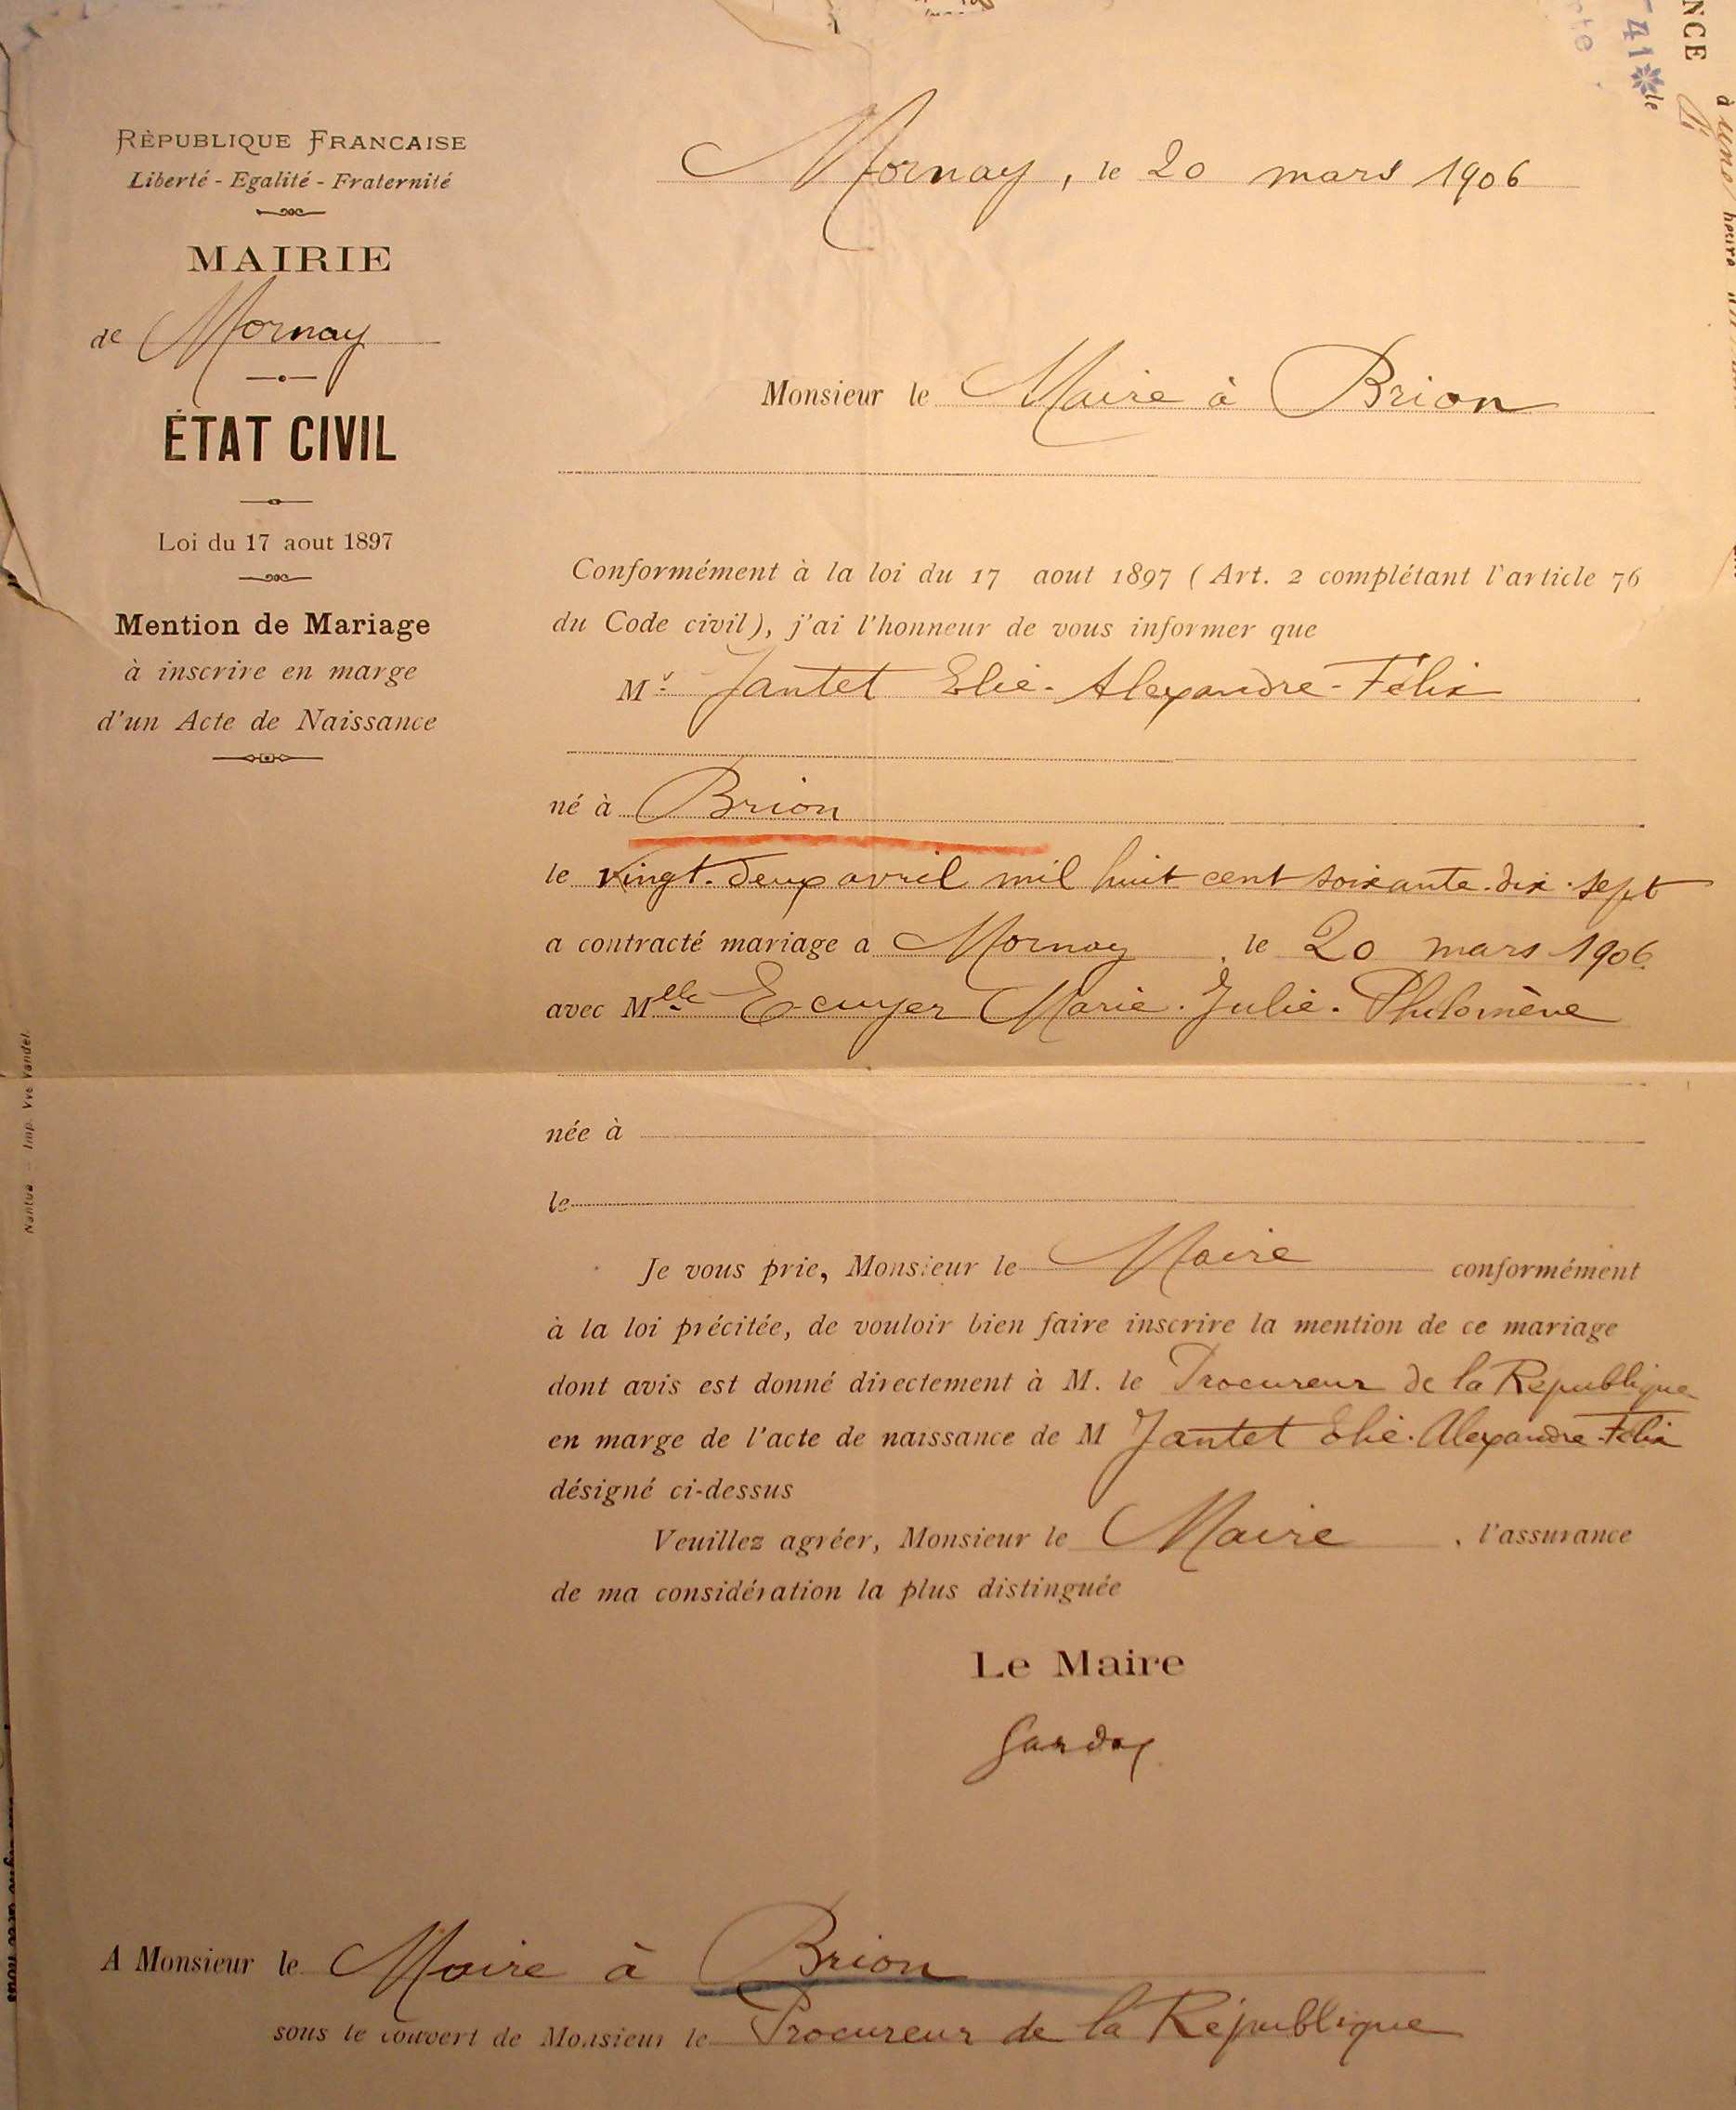 RÉPUBLIQUE FRANCAISE
Liberté - Egalité - Fraternité
MAIRIE
de Mornay
ÉTAT CIVIL
Loi du 17 aout 1897
Mention de Mariage
à inscrire en marge
d'un Acte de Naissance
Nantua - Imp. Vve Vandel.
NCE
41
le
à une
heure
Mornay, le 20 mars 1906
Monsieur le Maire à Brion
Conformément à la loi du 17 aout 1897 (Art. 2 complétant l'article 76
du Code civil), j'ai l'honneur de vous informer que
Mr. Jantet Elie-Alexandre-Félix
né à Brion
le vingt-deux avril mil huit cent soixante-dix-sept
a contracté mariage a Mornay, le 20 mars 1906
avec Melle Ecuyer Marie-Julie-Philomène
née à
le
Je vous prie, Monsieur le Maire conformément
à la loi précitée, de vouloir bien faire inscrire la mention de ce mariage
dont avis est donné directement à M. le Procureur de la République
en marge de l'acte de naissance de M Jantet Elie-Alexandre-Félix
désigné ci-dessus
Veuillez agréer, Monsieur le Maire, l'assurance
de ma considération la plus distinguée
Le Maire
A Monsieur le Maire à Brion
sous le couvert de Monsieur le Procureur de la République